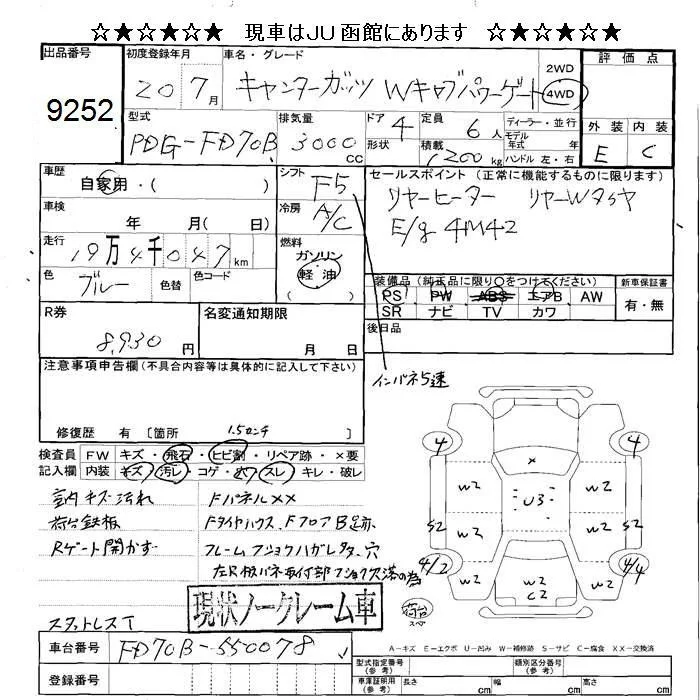 ☆★☆★☆★ 現車はJU函館にあります ☆★☆★☆★
出品番号 初度登録年月 車名・グレード 2WD 評価点
9252 20 7月 キャンターガッツ Wキャブパワーゲート 4WD
型式 排気量 ドア 定員 ディーラー・並行 外装 内装
PDG-FD70B 3000cc 4 6人 モデル年式 年式 E C
形状 積載 1200kg ハンドル 左・右
車歴 シフト セールスポイント (正常に機能するものに限ります)
自家用・( ) F5 リヤーヒーター リヤーWタイヤ
車検 冷房 E/g 4M42
年 月( 日) A/C
走行 燃料
19万4千047km ガソリン・軽油
色 色替 色コード 装備品 (純正品に限り○をつけてください) 新車保証書
ブルー ( ) PS PW ABS エアB AW 有・無
SR ナビ TV カワ
R券 名変通知期限 後日品
8,930円 月 日
注意事項申告欄(不具合内容等は具体的に記入して下さい) インパネ5速
修復歴 有 〔箇所 1.5センチ 〕
検査員 FW キズ・飛石・ヒビ割・リペア跡・×要
記入欄 内装 キズ・汚レ・コゲ・穴・スレ・キレ・破レ
室内キズ汚れ FパネルXX
荷台鉄板 Fタイヤハウス、FフロアB跡
Rゲート開かず フレームフショクハガレタメ、穴
左R板バネ取付部フショク欠落の為
スタットレスT 現状ノークレーム車
4 4
×
W2 U3 W2
S2 W2 W2 S2
4/2 4/4
W2
C2
荷台
スペア
車台番号 FD70B-550078
登録番号
A-キズ E-エクボ U-凹み W-補修跡 S-サビ C-腐食 XX-交換済
型式指定番号(参考) 類別区分番号(参考)
車庫証明用(参考) 長さ cm 幅 cm 高さ cm